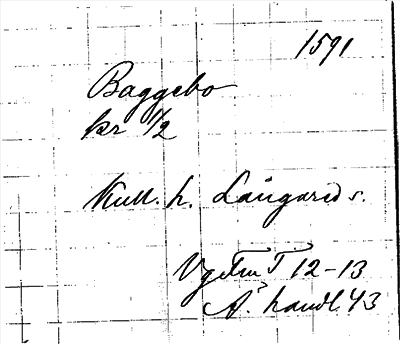 1591
Baggebo
kr 1/2
Kull. h. Långared s.
12-13
Ä. handl. 43